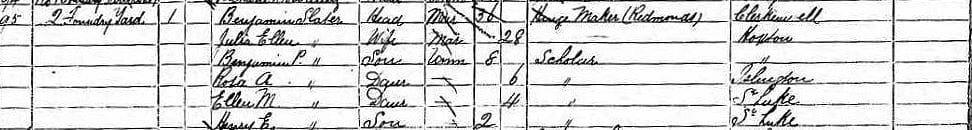 95 2 Foundry Yard 1 Benjamin Slater Head Mar 30 Hinge Maker (Redmonds) Clerkenwell
Julia Ellen " Wife Mar 28 Hoxton
Benjamin P. " Son Unm 8 Scholar "
Rosa A. " Daur 6 " Islington
Ellen M " Daur 4 " St Luke
Henry E. " Son 2 St Luke